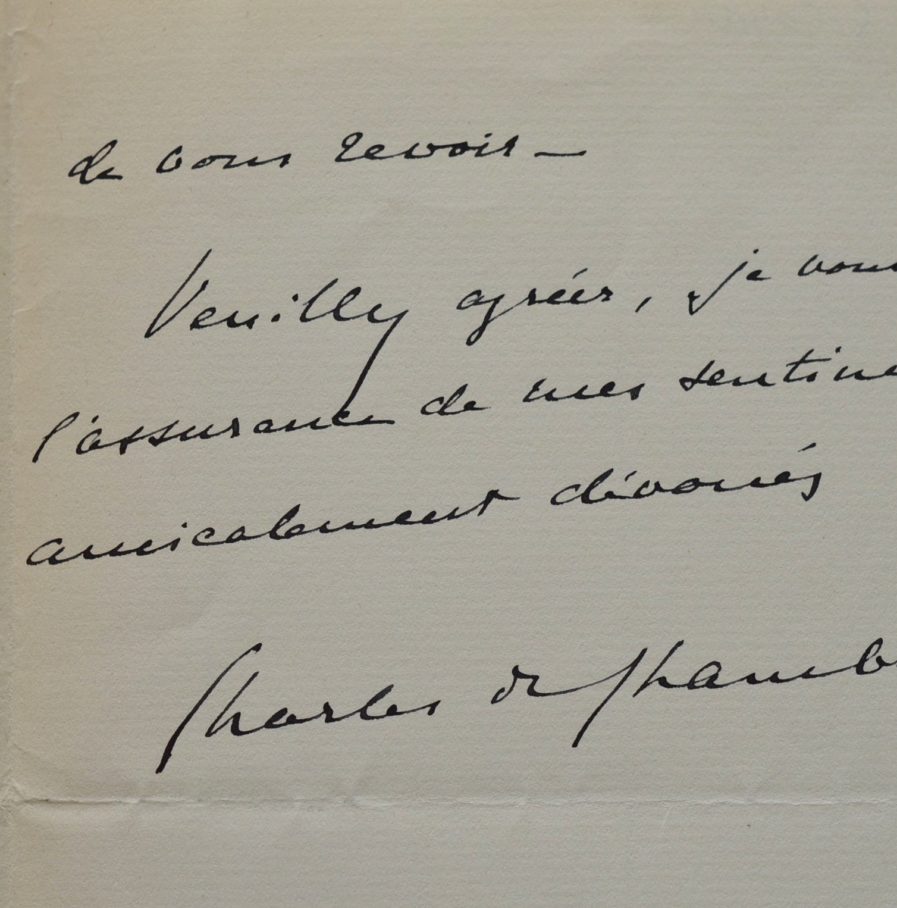 de vous revoir –
Veuillez agréer, je vous
l'assurance de mes sentime
amicalement dévoués
Charles de Chamb